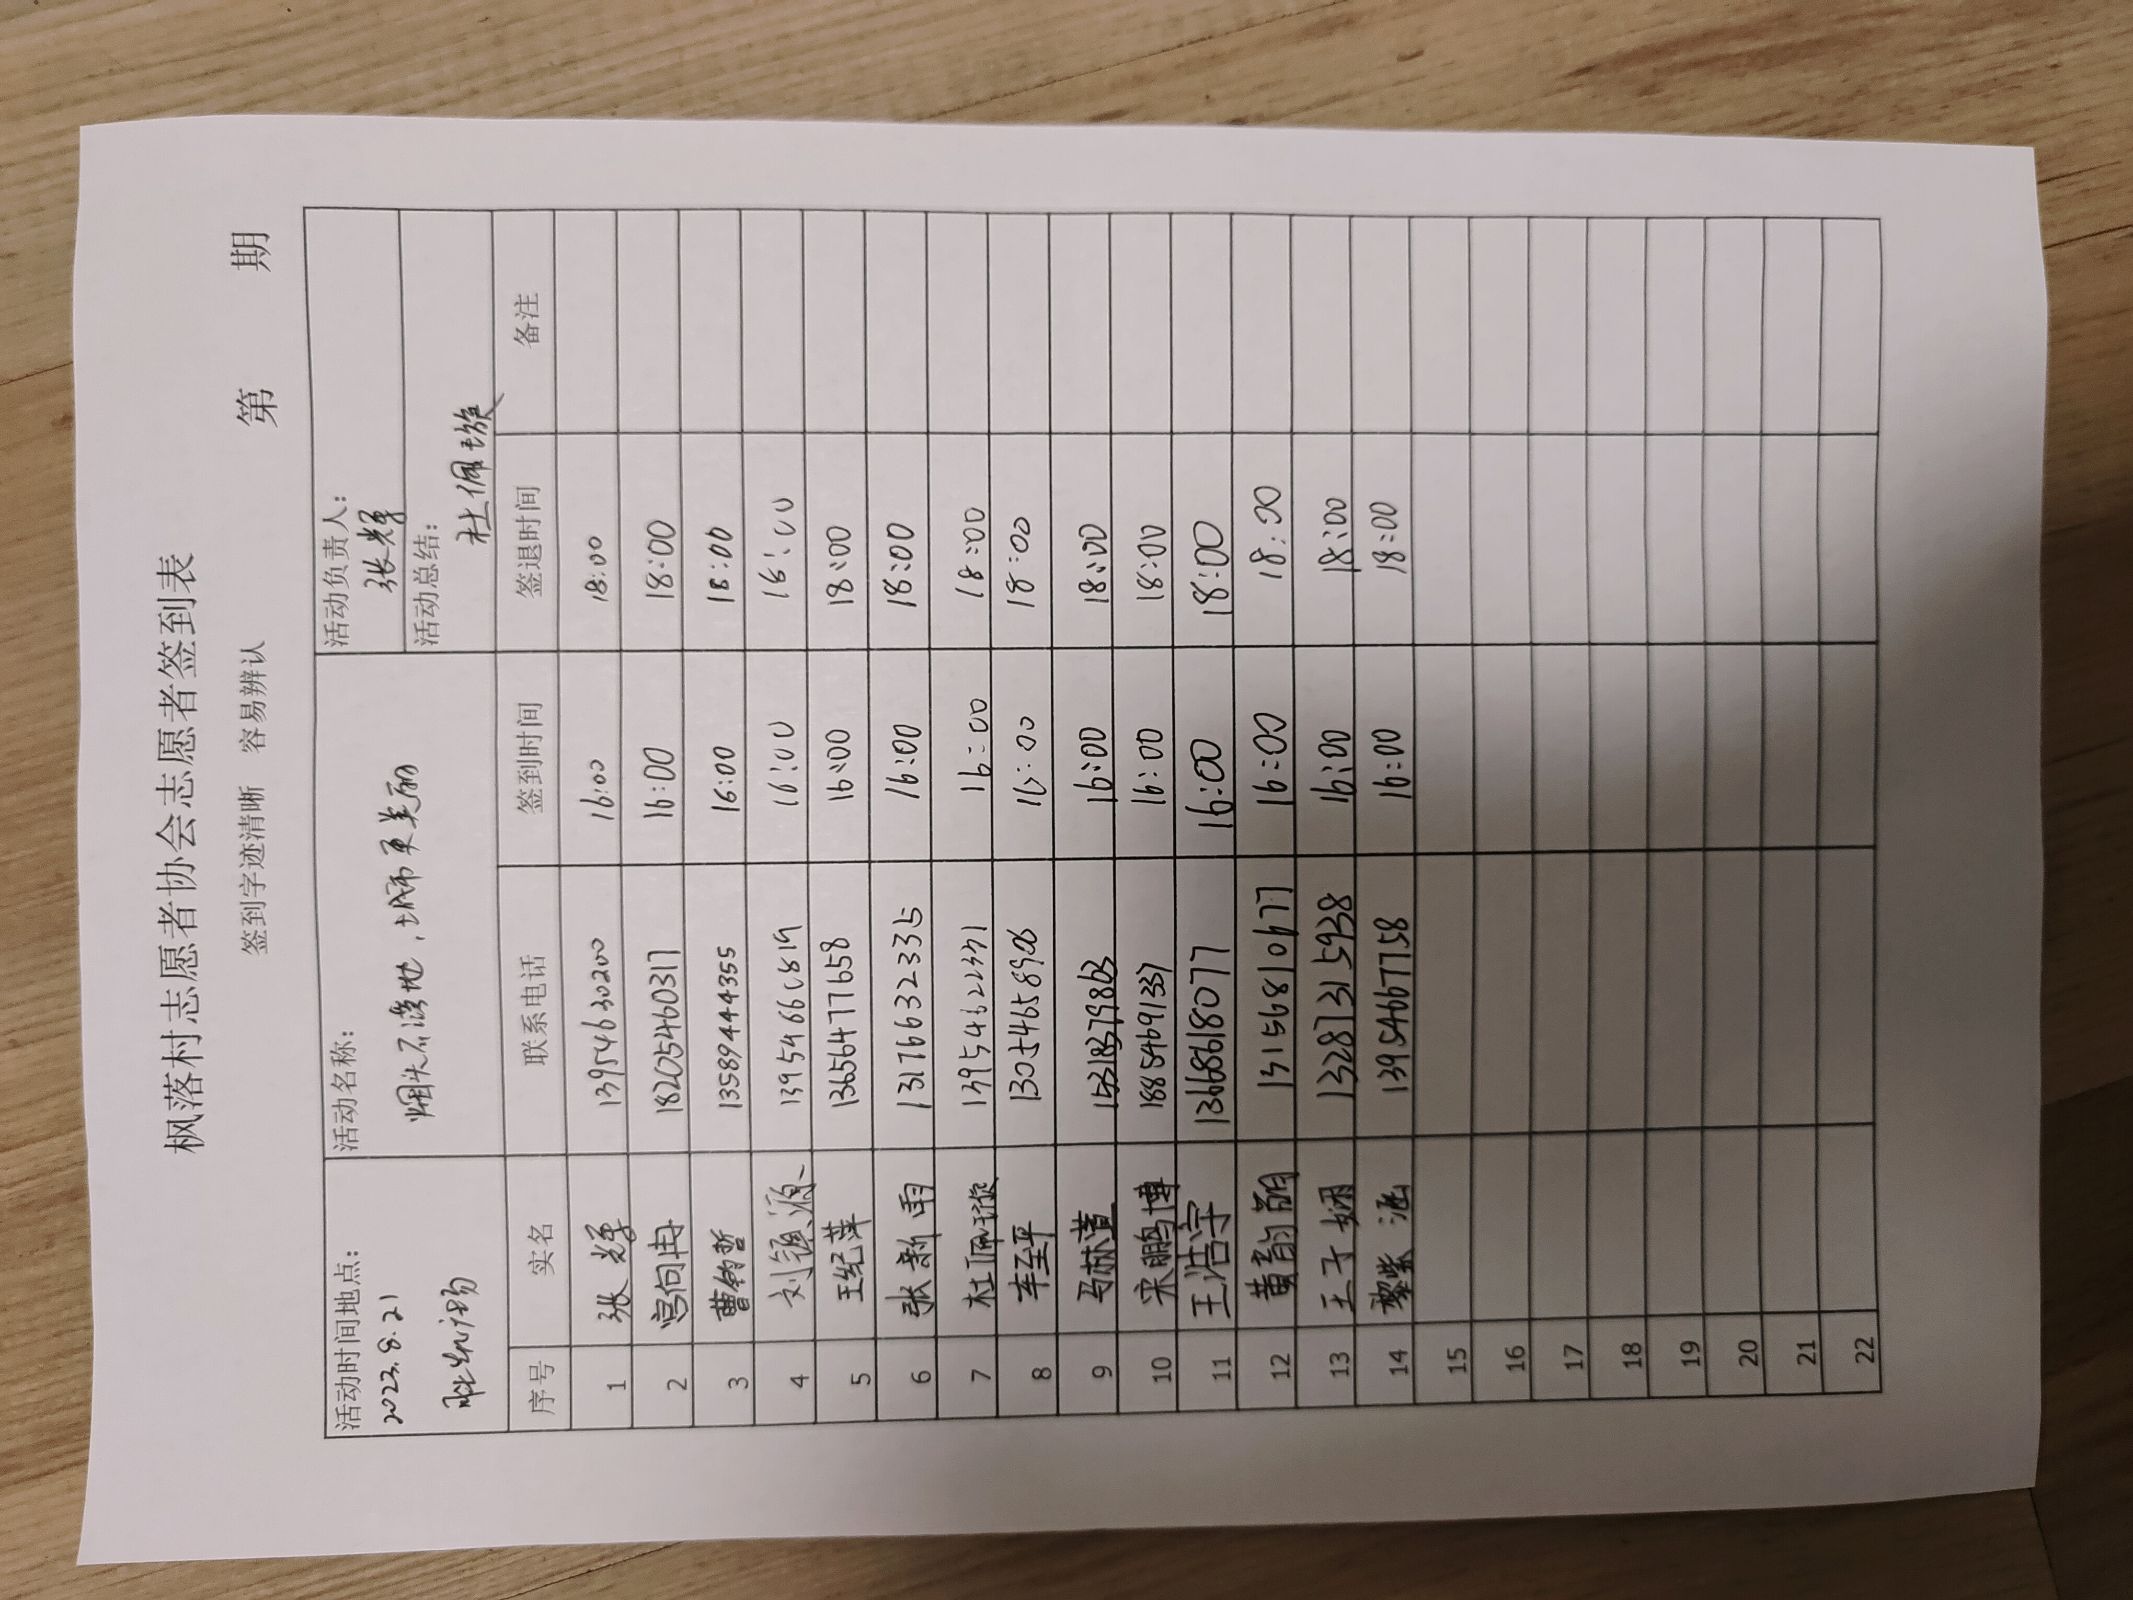 枫落村志愿者协会志愿者签到表
签到字迹清晰 容易辨认 第 期
活动时间地点： 活动名称： 活动负责人：
2023.8.21 张辉
烟头不落地，城市更美丽 活动总结：
杜佩璇
序号 实名 联系电话 签到时间 签退时间 备注
1 张辉 13954630200 16:00 18:00
2 宫向冉 18205460317 16:00 18:00
3 曹钧哲 13589444355 16:00 18:00
4 刘镇源 13954666819 16:00 18:00
5 王纪萍 13656477658 16:00 18:00
6 张新雨 13176632335 16:00 18:00
7 杜佩璇 13954622331 16:00 18:00
8 车至平 13054658906 16:00 18:00
9 马赫萱 16:00 18:00
10 宋鹏博 18854691337 16:00 18:00
11 王浩宇 13668618077 16:00 18:00
12 黄韵颜 13156810677 16:00 18:00
13 王子娴 13287315938 16:00 18:00
14 黎紫涵 13954667758 16:00 18:00
15
16
17
18
19
20
21
22